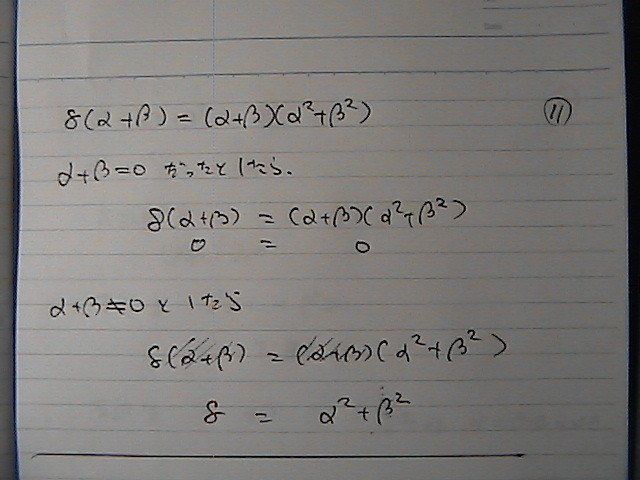 8(α+β) = (α+β)(α²+β²) ⑪
α+β=0 だったとしたら.
8(α+β) = (α+β)(α²+β²)
0 = 0
α+β≠0 としたら
8(α+β) = (α+β)(α²+β²)
8 = α²+β²